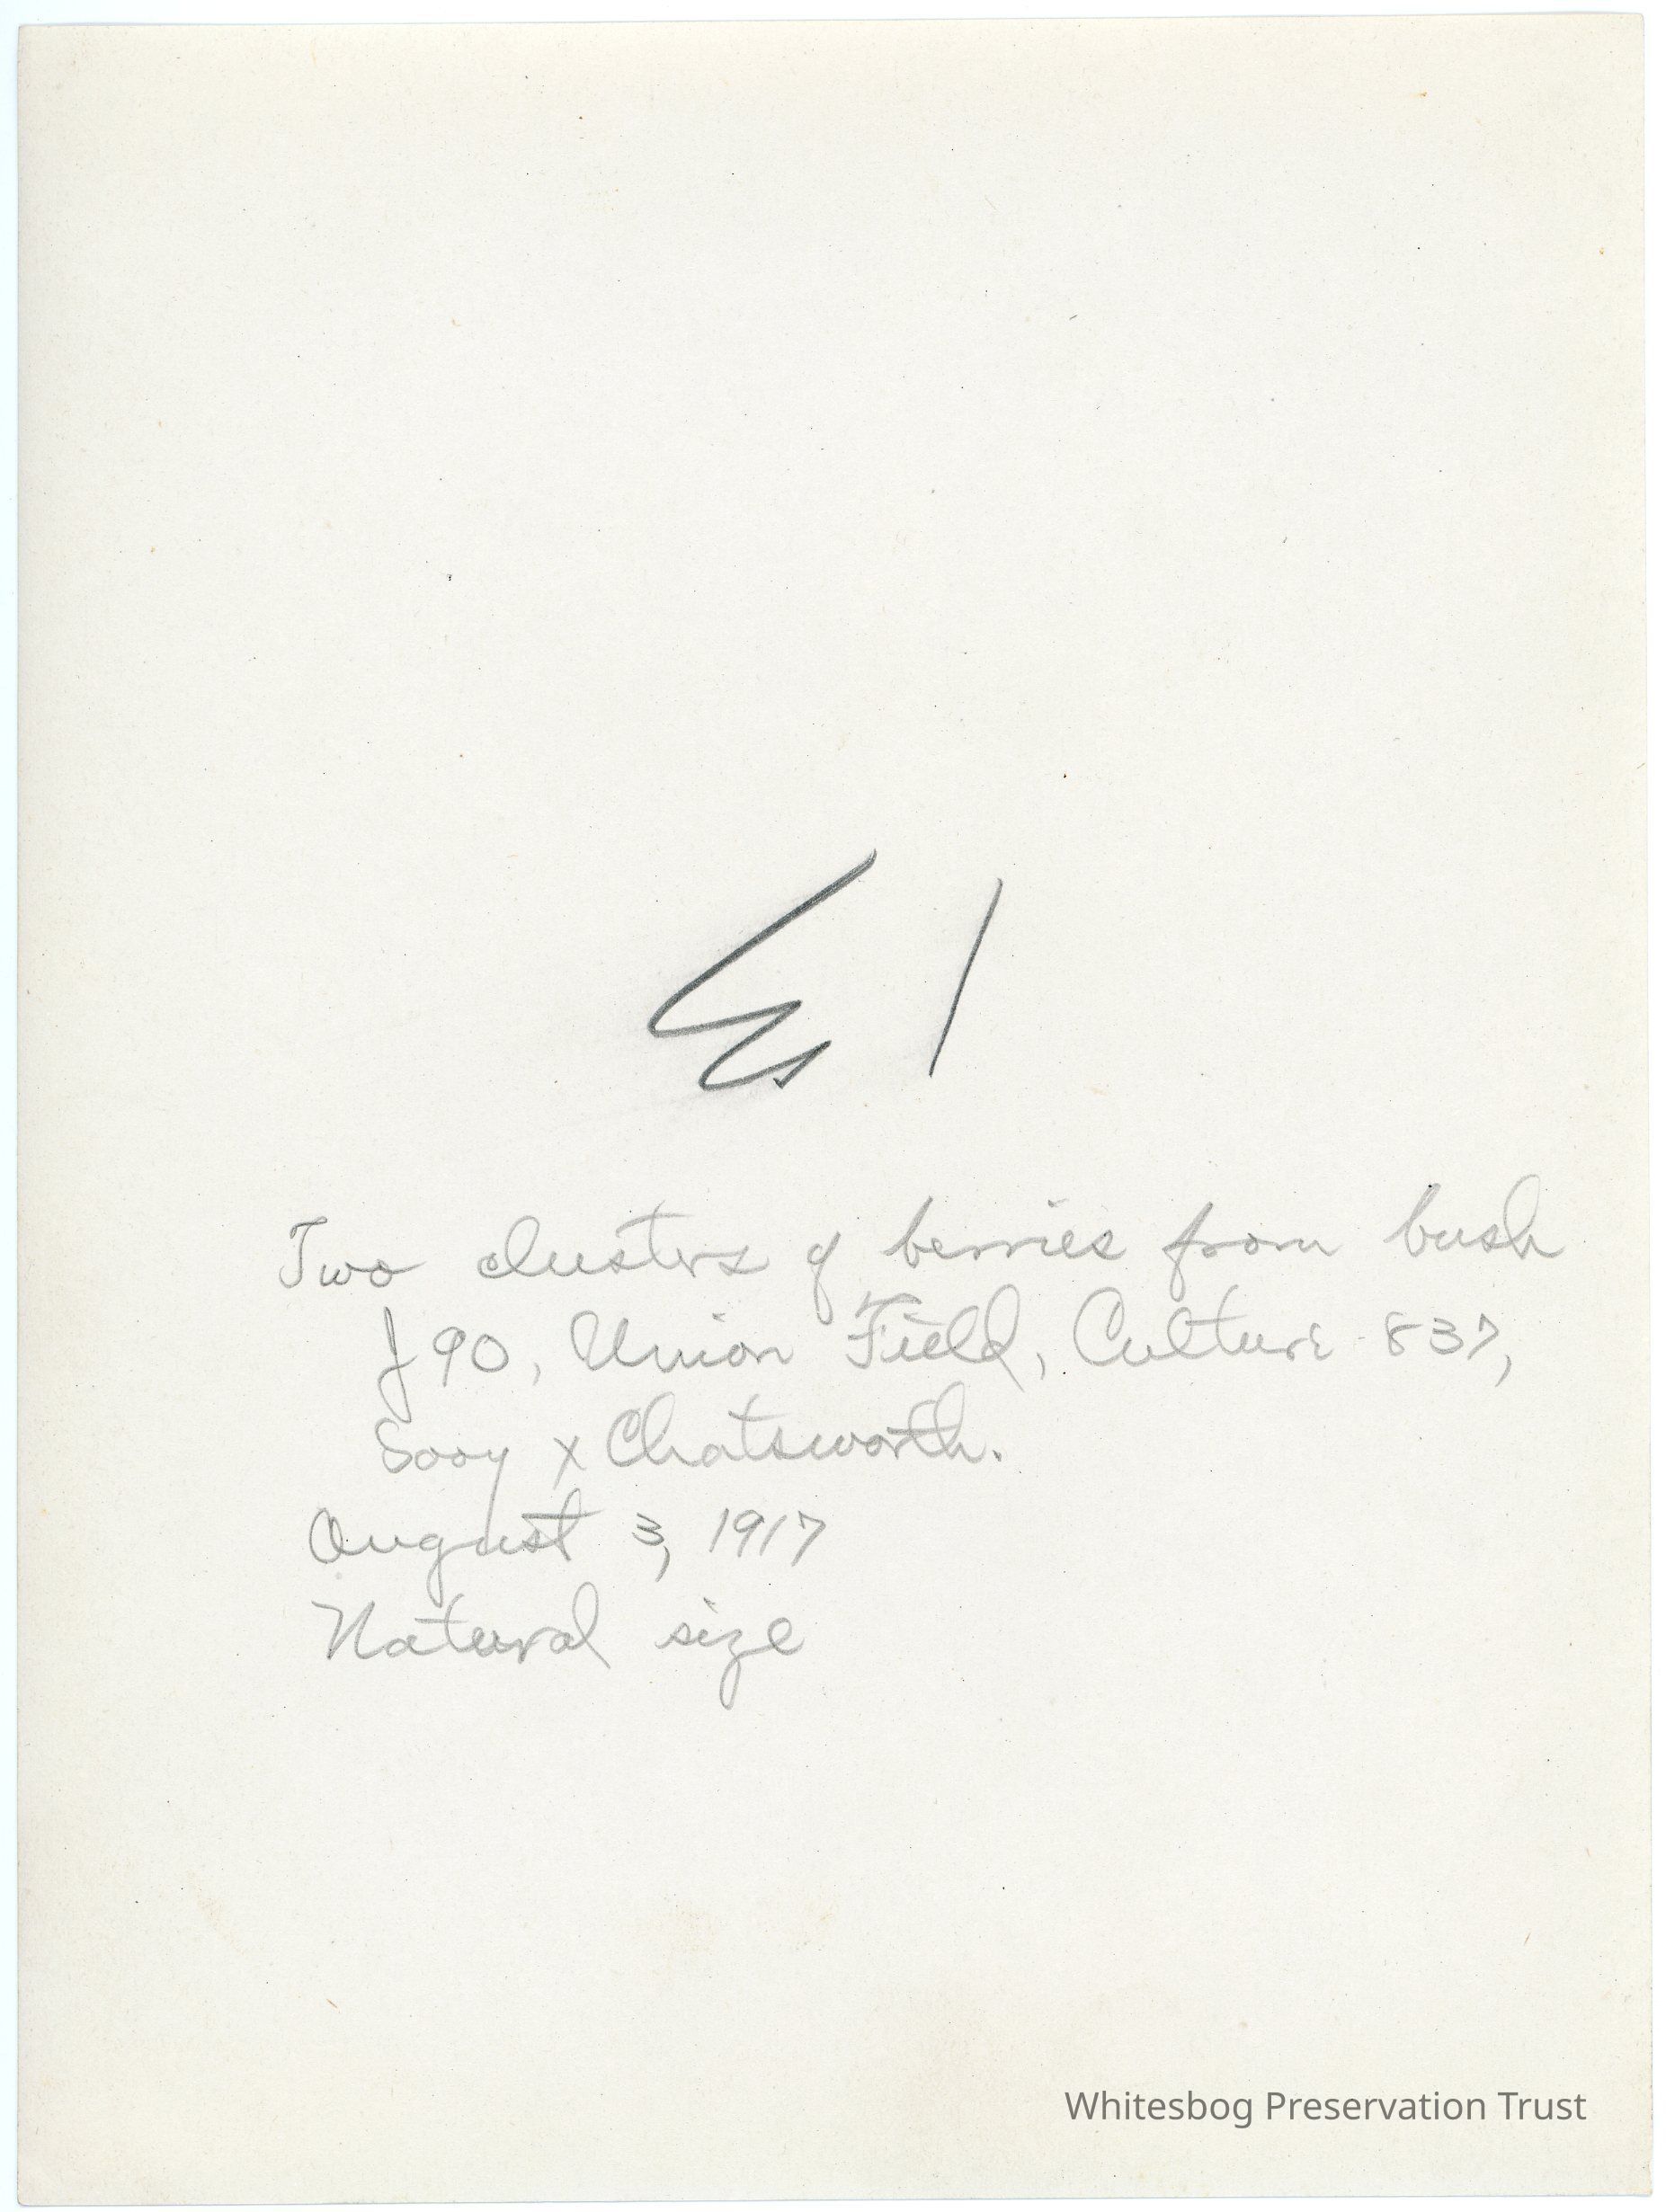 Two clusters of berries from bush
J 90, Union Field, Culture 837,
Sooy x Chatsworth.
August 3, 1917
Natural size
Whitesbog Preservation Trust